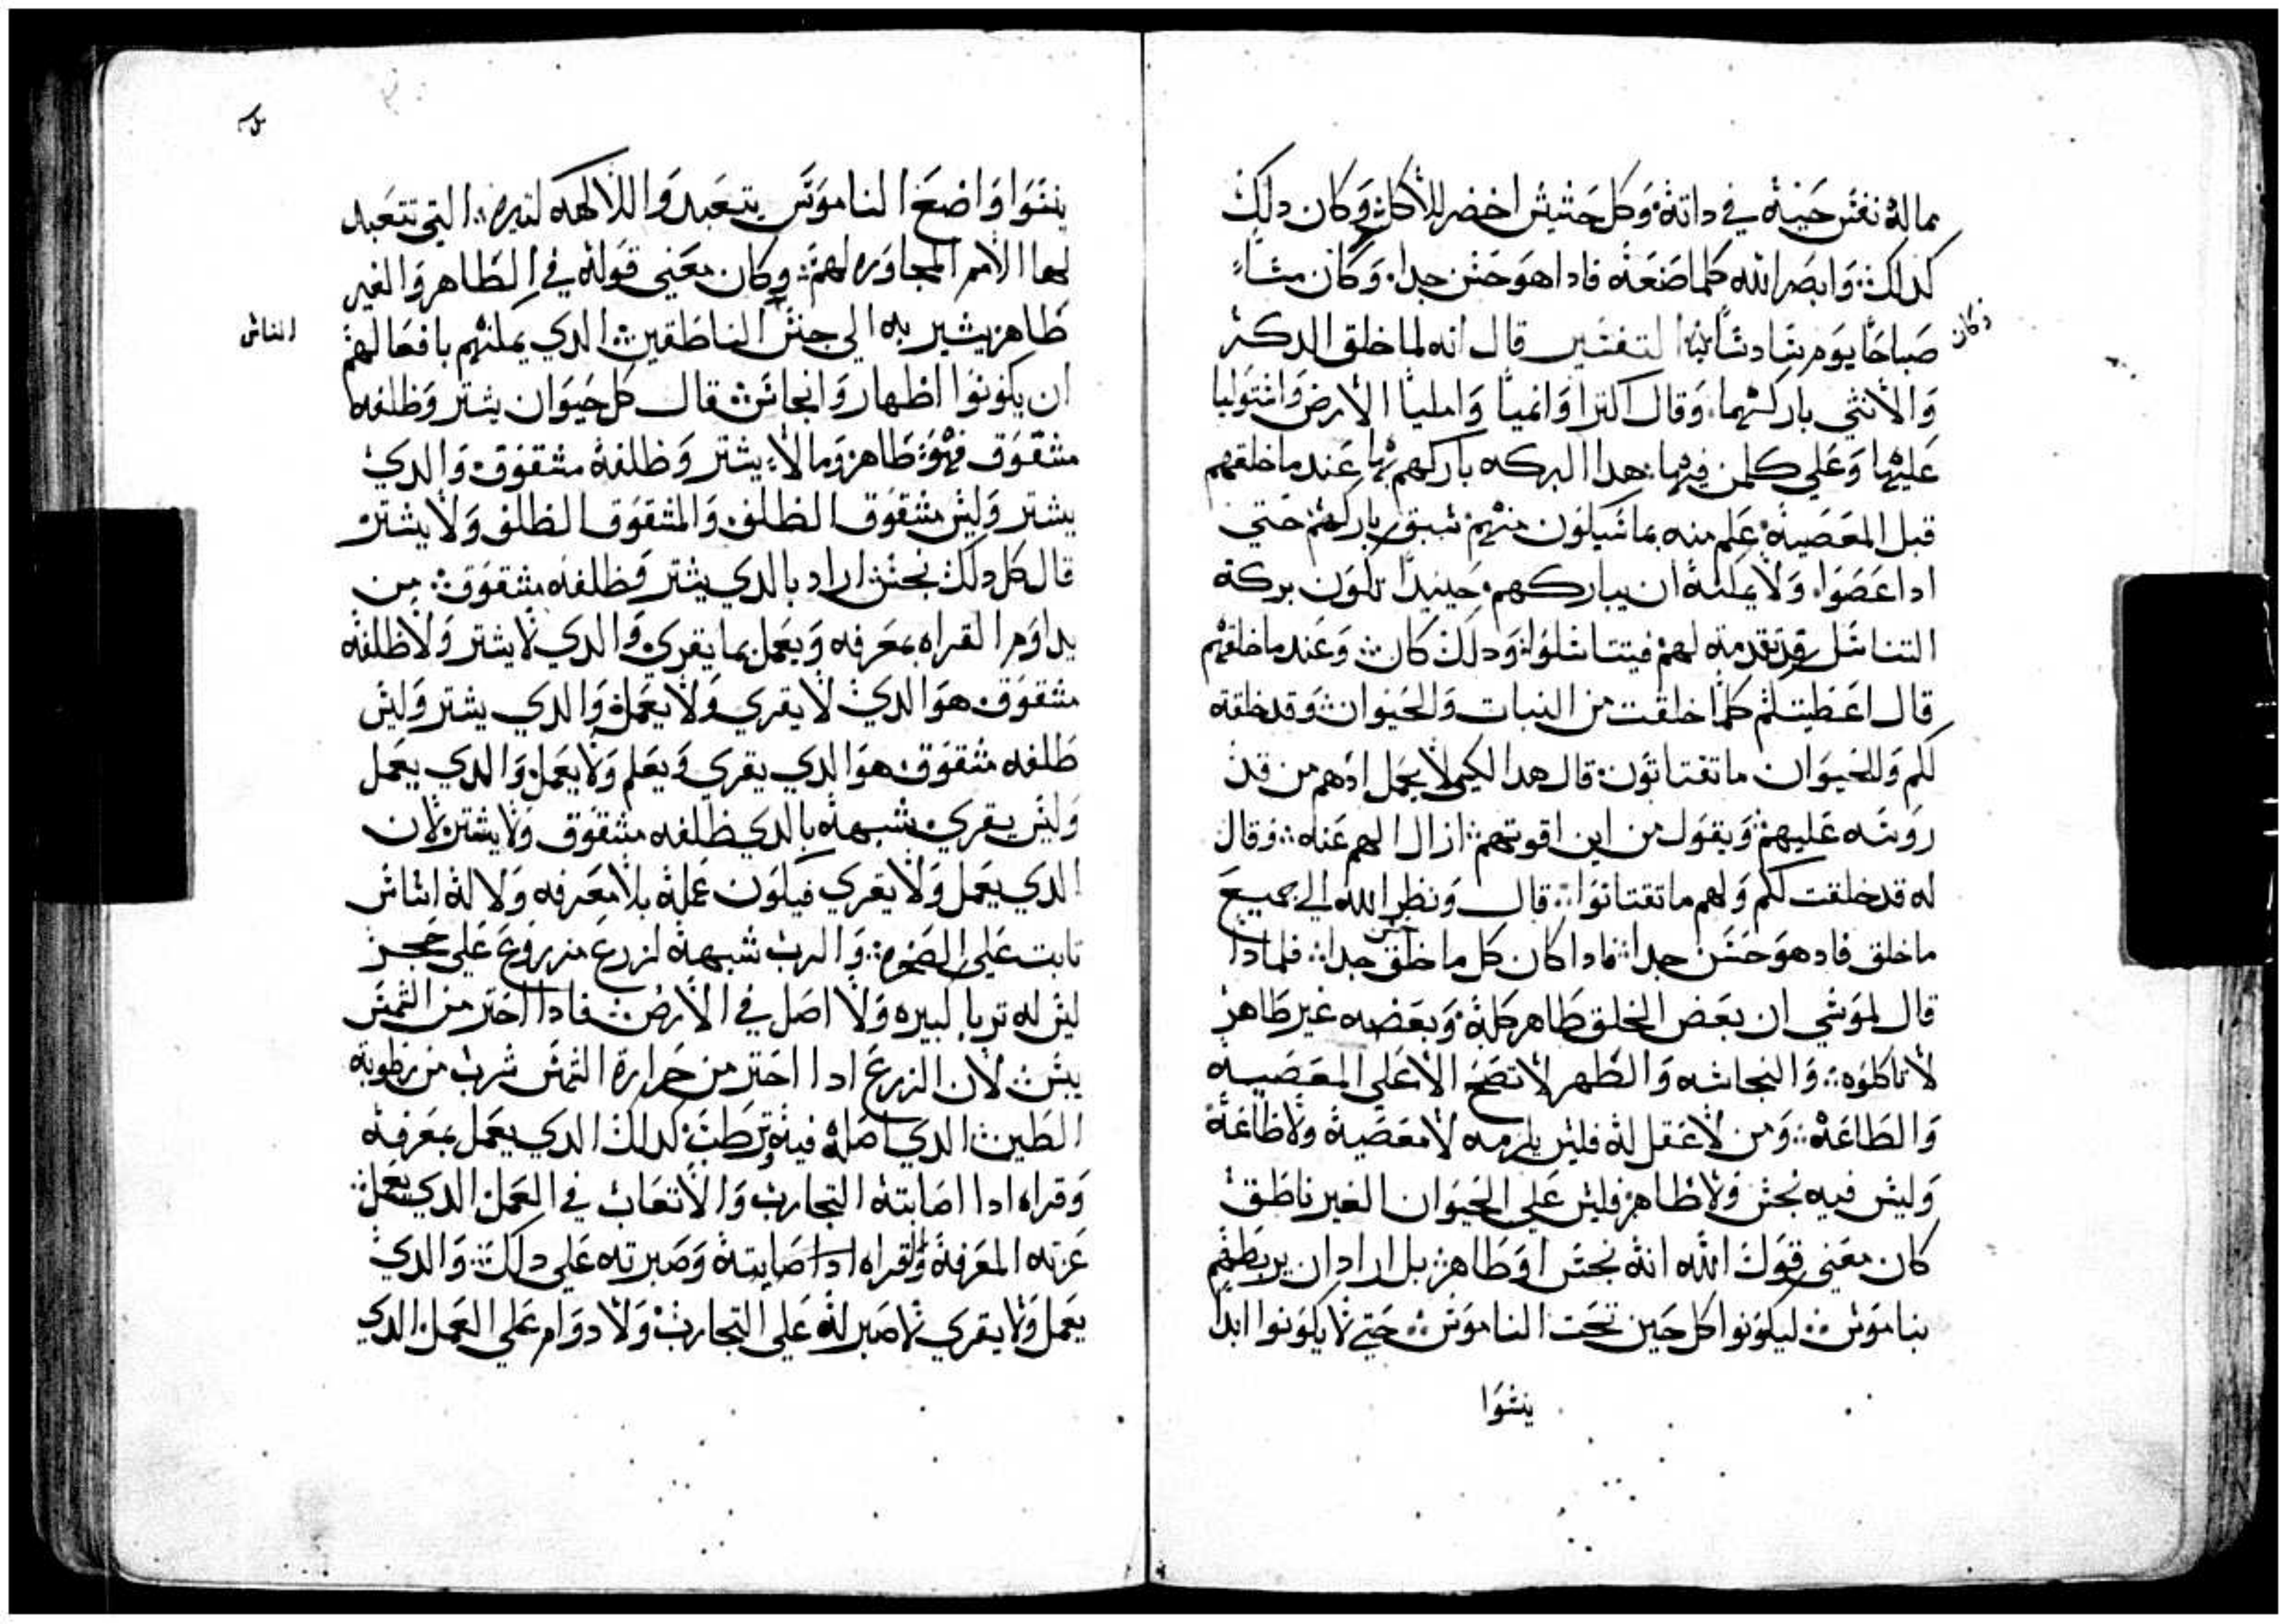 مما له نفس حيية في داته وكل حشيش اخضر للأكل وكان دلك
كدلك وابصر الله كلما صنعه فادا هو حسن جدا وكان مساءً
وكان
صباحًا يوم سادسًا التفسير قال انه لما خلق الدكر
والأنثي باركهما وقال اكترا وانميا وامليا الأرض واستوليا
عليها وعلي كلمن فيها هدا البركه باركهم بها عند ما خلقهم
قبل المعصية علم منه بما سيكون منهم سبق باركهم حتي
ادا عصوا ولا يمكنه ان يباركهم حينيدًا تكون بركة
التناسل قد تقدمته لهم فيتناسلوا ودلك كان وعند ما خلقهم
قال اعطيتكم كلما خلقت من النبات والحيوان وقد خلقته
لكم وللحيوان ما تقتاتون قال هدا لكيلا يحمل ادم من قد
روسه عليهم ويقول من اين اقوتهم ازال الهم عنه وقال
له قد خلقت لكم ولهم ما تقتاتوا قال ونظر الله الي جميع
ما خلق فادا هو حسن جدا فادا كان كل ما خلق حسن جدا فلمادا
قال لموسي ان بعض الخلق طاهر كله وبعضه غير طاهر
لا تاكلوه والنجاسه والطهر لا تصح الا علي المعصيه
والطاعة ومن لا عقل له فليس يلزمه لا معصية ولا طاعة
وليس فيه نجس ولا طاهر فليس علي الحيوان الغير ناطق
كان معني قول الله انه نجس او طاهر بل اراد ان يربطهم
بناموس ليكونوا كل حين تحت الناموس حتي لا يكونوا ابدا
ينسوا
ينسوا واضع الناموس يتعبدوا للالهه لتيره التي تتعبد
لها الامم المجاوره لهم وكان معني قوله في الطاهر والغير
طاهر يشير به الي جنس الناطقين الدي يمكنهم بافعالهم
الناس
ان يكونوا اطهار وانجاس قال كل حيوان يشتر وظلفه
مشقوق فهو طاهر وما لا يشتر وظلفه مشقوق والدي
يشتر وليس مشقوق الظلف والمشقوق الظلف ولا يشتر
قال كل دلك نجس اراد بالدي يشتر وظلفه مشقوق من
يداوم القراه بمعرفه ويعمل بما يقري والدي لا يشتر ولا ظلفه
مشقوق هو الدي لا يقري ولا يعمل والدي يشتر وليس
ظلفه مشقوق هو الدي يقري ويعلم ولا يعمل والدي يعمل
وليس يقري شبهه بالدي ظلفه مشقوق ولا يشتر لان
الدي يعمل ولا يقري فيكون عمله بلا معرفه ولا له اساس
تابت علي الصخره والرب شبهه لزرع مزروع علي حجر
ليس له تربا كبيره ولا اصل في الأرض فادا احتر من الشمس
يبس لان الزرع ادا احتر من حرارة الشمس شرب من رطوبة
الطين الدي اصله فيه وترطب كدلك الدي يعمل بمعرفه
وقراه ادا اصابته التجارب والأتعاب في العمل الدي يعمل
عزته المعرفة والقراه ادا اصابته وصبرته علي دلك والدي
يعمل ولا يقري لا صبر له علي التجارب ولا دوام علي العمل الدي